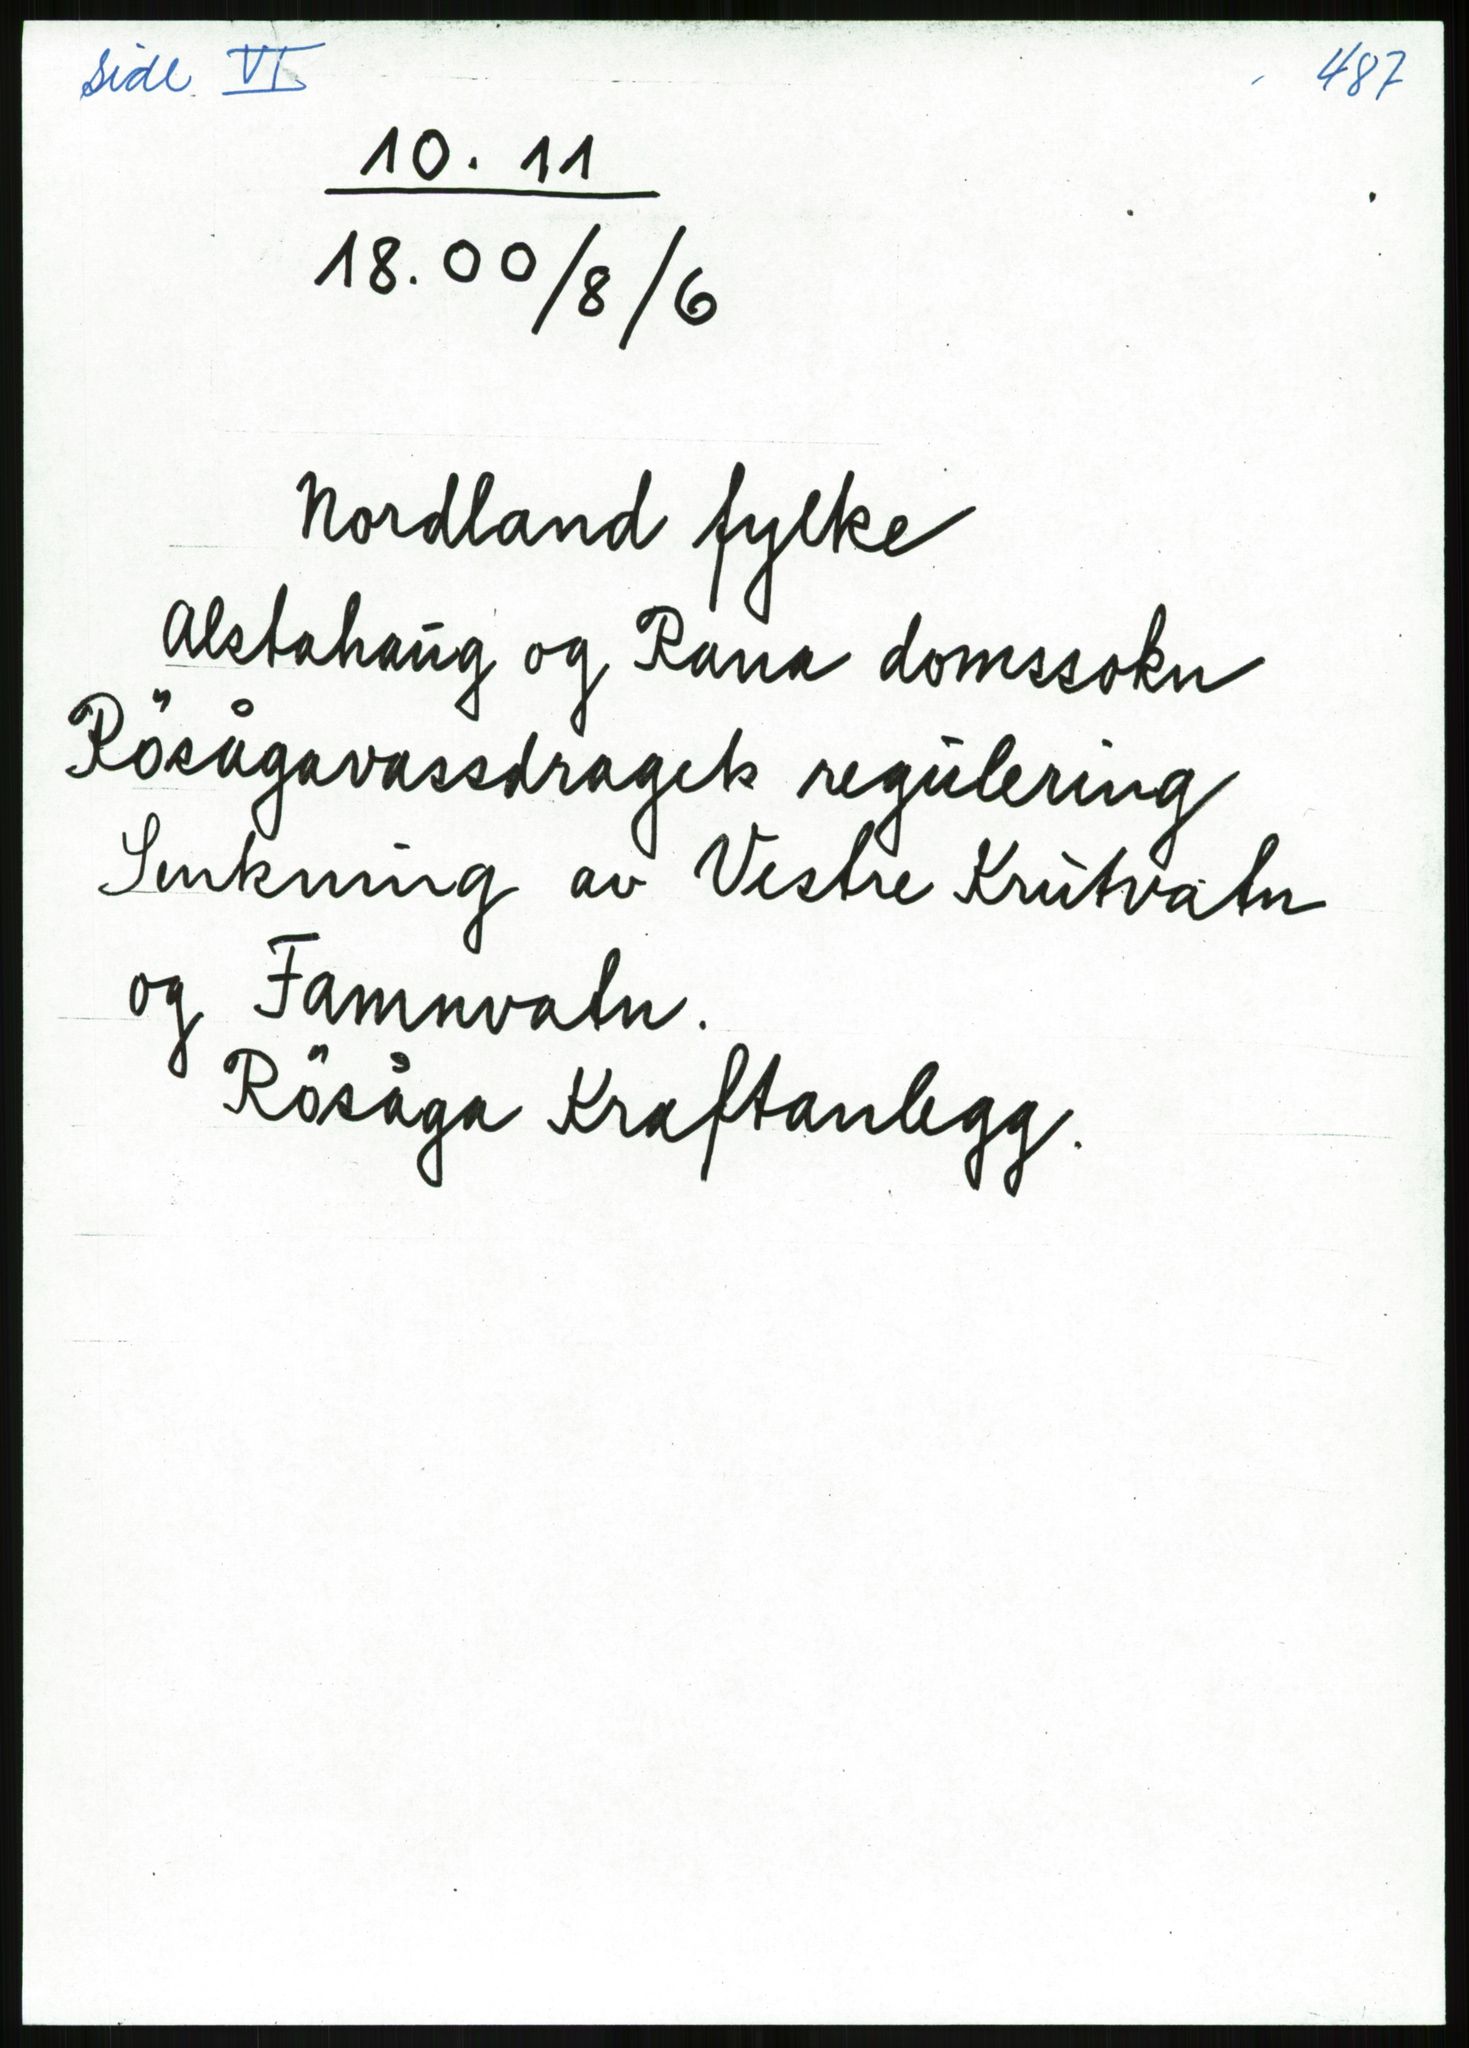 side VI 487
10. 11
18.00/8/6
Nordland fylke
Alstahaug og Rana domssokn
Rösågavassdragets regulering
Senkning av Vestre Krutvatn
og Famnvatn.
Rösåga Kraftanlegg.